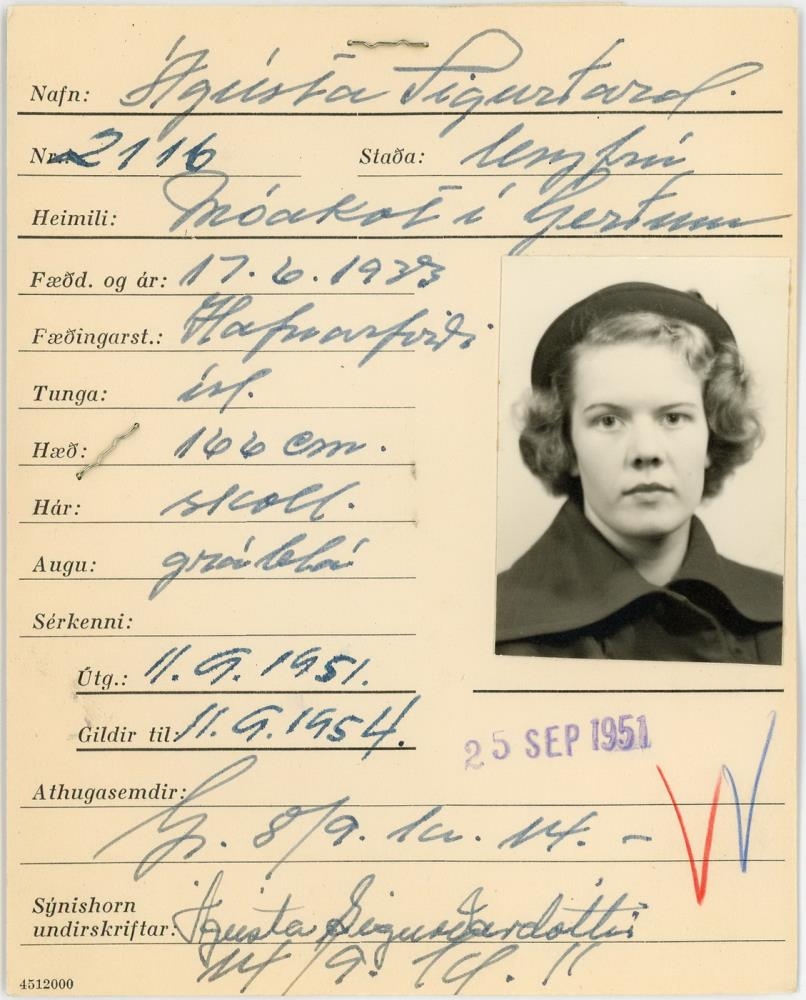 Nafn: Ágústa Sigurðard.
Nr.: 2116 Staða: ungfrú
Heimili: Móakot í Gerðum
Fæðd. og ár: 17.6.1933
Fæðingarst.: Hafnarfirði
Tunga: ísl.
Hæð: 166 cm.
Hár: skoll.
Augu: gráblá
Sérkenni:
Útg.: 11.9.1951.
Gildir til: 11.9.1954.
25 SEP 1951
Athugasemdir:
Gr. 8/9. kr. 14. -
Sýnishorn
undirskriftar: Ágústa Sigurðardóttir
14/9.
4512000